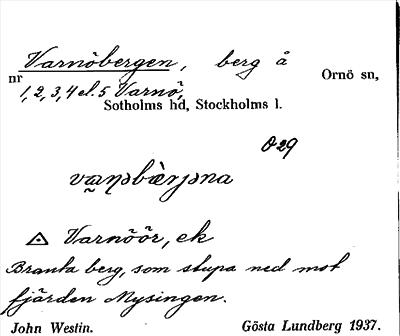 Varnöbergen, berg å
nr 1, 2, 3, 4 el. 5 Varnö, Ornö sn,
Sotholms hd, Stockholms l.
029
Varnöör, ek
Branta berg, som stupa ned mot
fjärden Mysingen.
John Westin. Gösta Lundberg 1937.